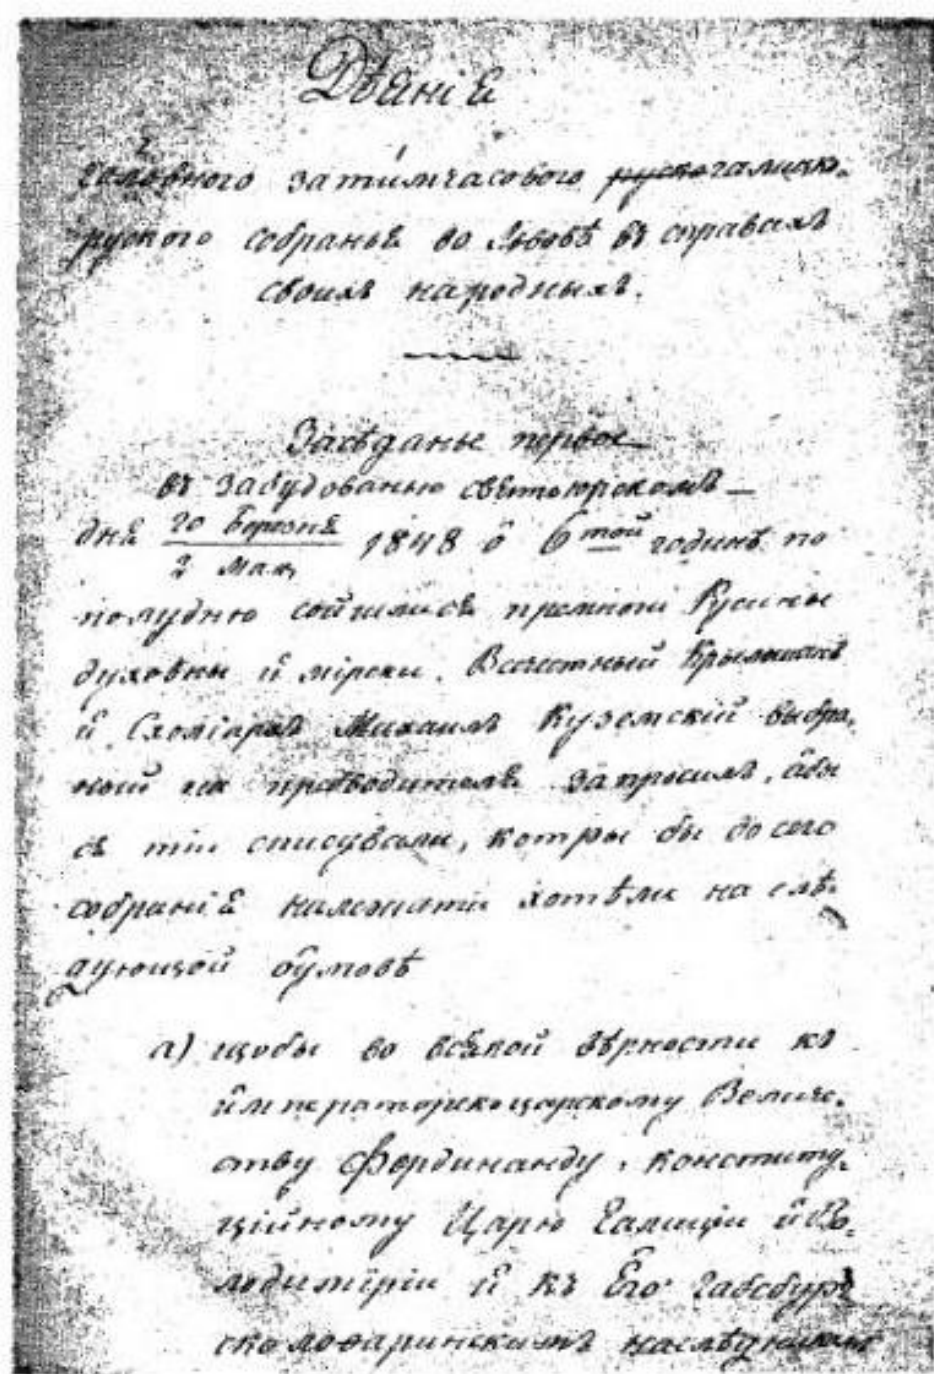 Дѣянія
головного затимчасового руско галицко-
руского собранья во Львовѣ въ справахъ
своихъ народныхъ.
Засѣданье первое
въ забудованью святоюрскомъ —
дня 20 Березня / 2 Мая 1848 ô 6той годинѣ по
полудню сойшлися премногі Русины
духовны и мірски. Всечестный Крылошанъ
и Схоліархъ Михаилъ Куземскій выбра-
ный на предводителя запросилъ, абы
ся тіи списували, котры бы до сего
собранія належати хотѣли на слѣ-
дующой оумовѣ
а) щобы во всякой вѣрности къ
императорскоцарскому Величе-
ству Фердинанду, конституц-
ційному Царю Галиціи и Во-
лодимиріи и къ Его Габсбург-
сколотаринскимъ наслѣдникамъ